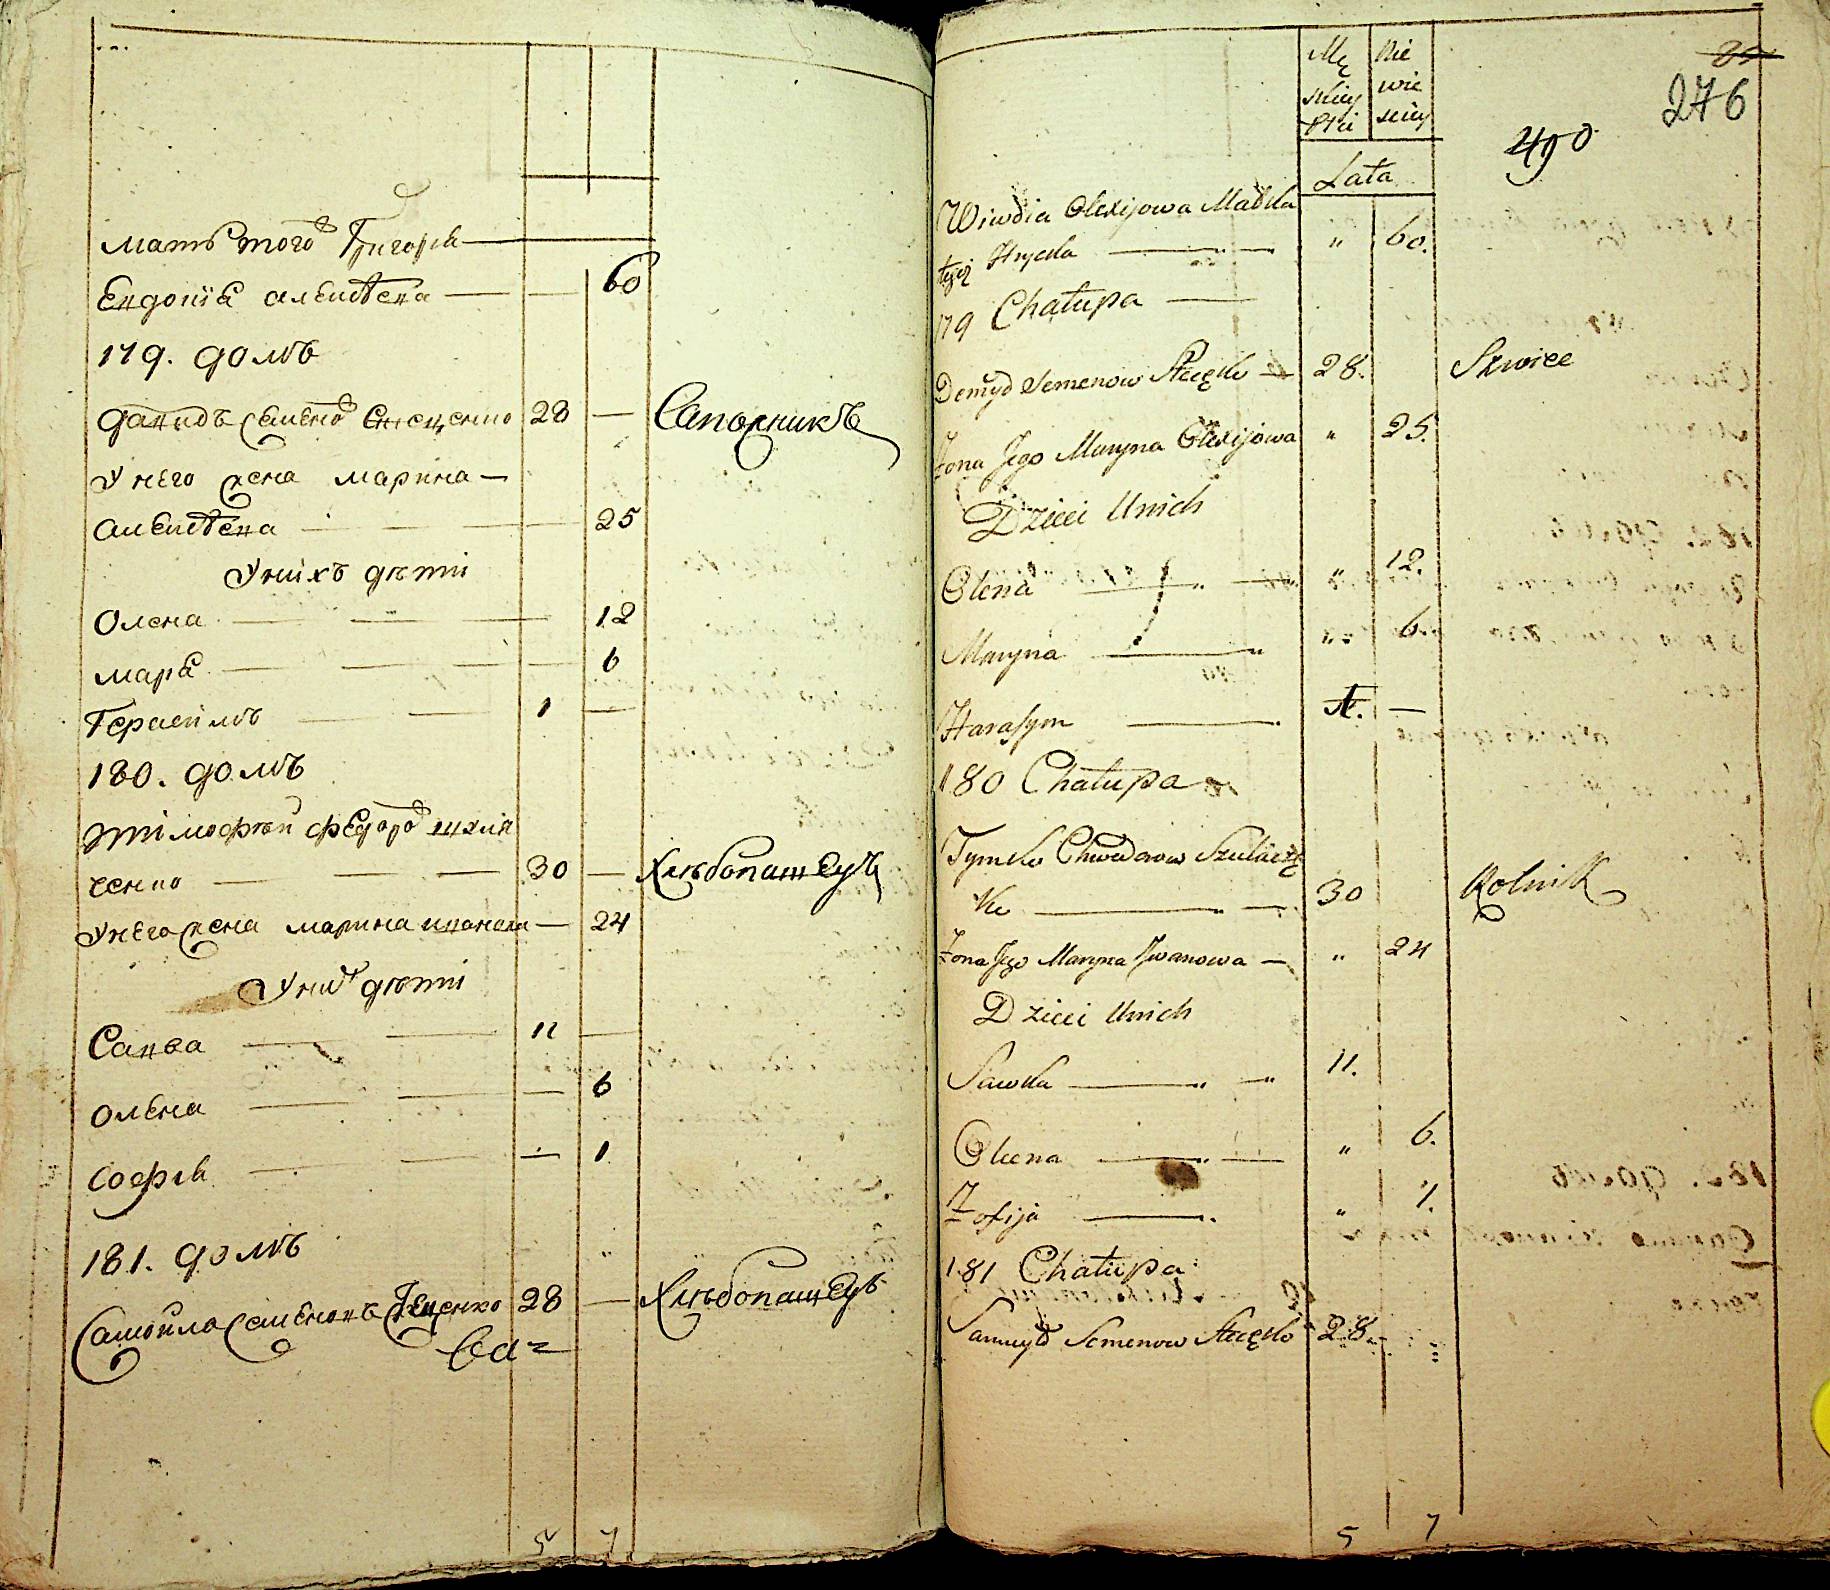 мать того Григория
Евдокия алексѣева 60
179. домъ
Давидъ Семенов Стеценко 28 — Сапожникъ
У него жена марина —
алексѣева 25
У нихъ дѣти
Олена 12
мара 6
Герасимъ 1 —
180. домъ
тимофѣй федоров шкля
ченко 30 — Хлѣбопашецъ
У него жена марина иванова — 24
У них дѣти
Савка 11 —
олена 6
софия 1
181. домъ
Самойла Семеновъ Стеценко 28 — Хлѣбопашецъ
5 7
Mę
skiey
Płci
Nie
wie
sciey
276
490
Lata
Wiwdia Olexijowa Matka
tegoż Hrycka „ 60.
179 Chałupa
Demyd Semenow Stecęko 28. Szwiec
Żona Jego Maryna Olexijowa „ 25.
Dzieci Unich
Olena „ 12.
Maryna „ 6.
Harasym 1. —
180 Chałupa
Tymko Chwedorow
ko 30 Rolnik
Żona Jego Maryna Iwanowa — „ 24
Dzieci Unich
Sawka 11.
Olena „ 6.
Zofija „ 1.
181 Chałupa
Samuyło Semenow Stecęko 28.
5 7